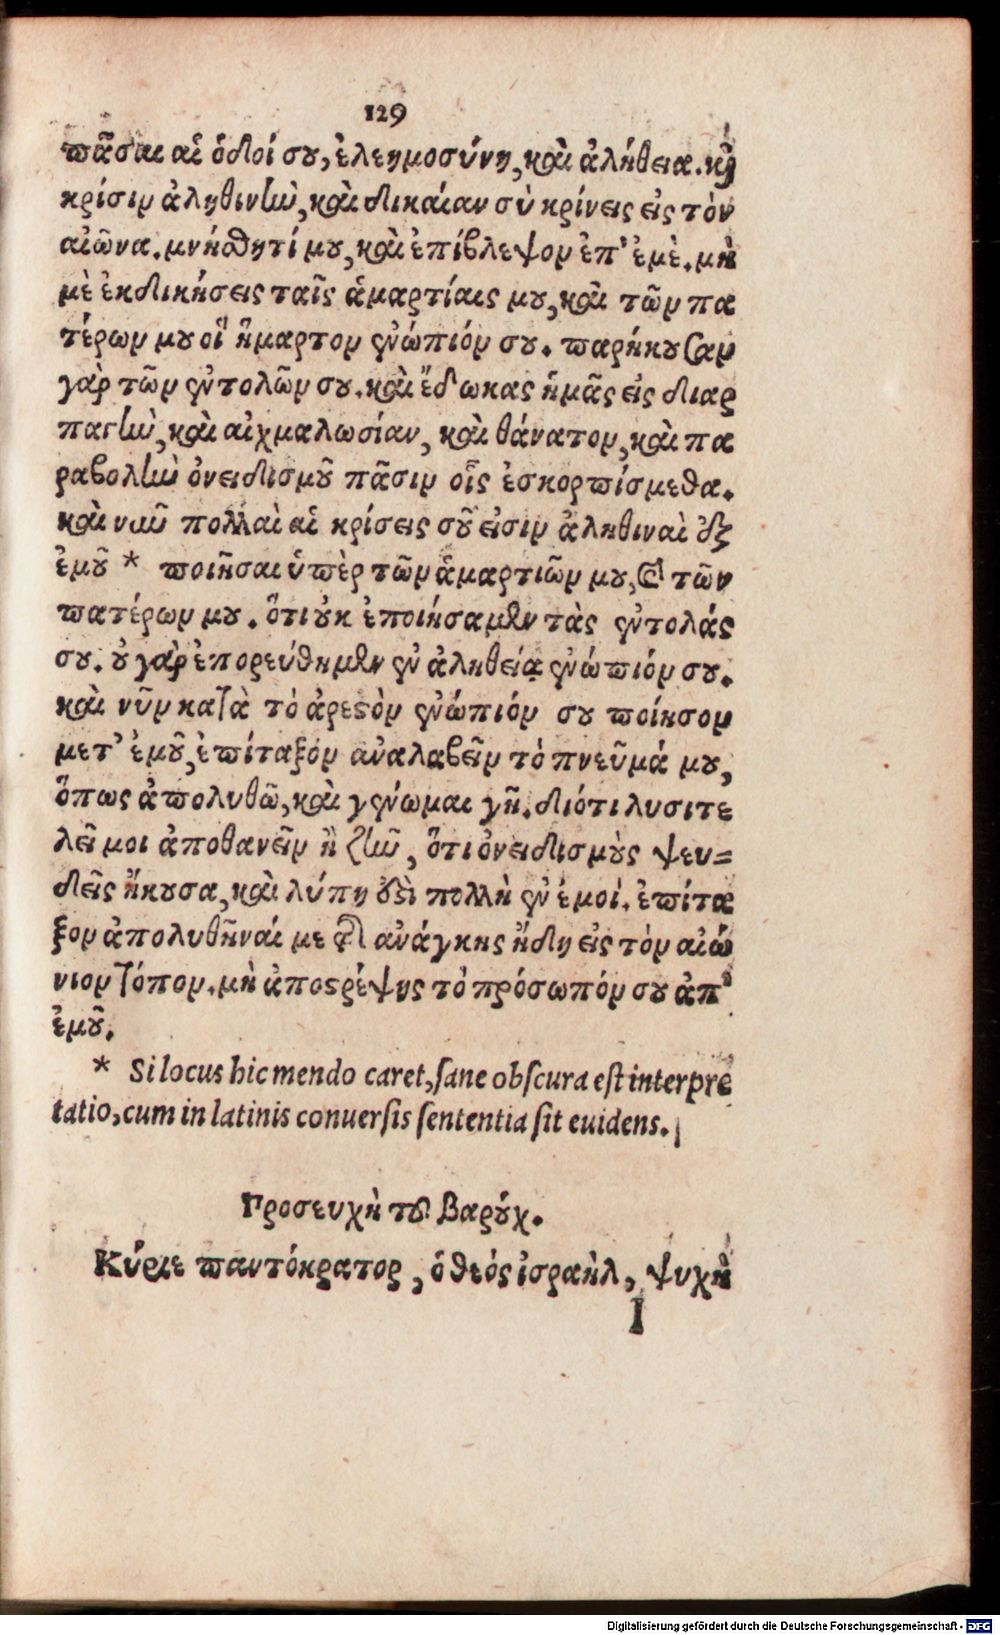 129
πᾶσαι αἱ ὁδοί σου, ἐλεημοσύνη, καὶ ἀλήθεια. καὶ
κρίσιν ἀληθινὴν, καὶ δικαίαν σὺ κρίνεις εἰς τὸν
αἰῶνα. μνήσθητί μου, καὶ ἐπίβλεψον ἐπ' ἐμὲ. μὴ
μὲ ἐκδικήσεις ταῖς ἁμαρτίαις μου, καὶ τῶν πα
τέρων μου οἳ ἥμαρτον ἐνώπιόν σου. παρήκουσαν
γὰρ τῶν ἐντολῶν σου. καὶ ἔδωκας ἡμᾶς εἰς διαρ
παγὴν, καὶ αἰχμαλωσίαν, καὶ θάνατον, καὶ πα
ραβολὴν ὀνειδισμοῦ πᾶσιν οἷς ἐσκορπίσμεθα.
καὶ νῦν πολλαὶ αἱ κρίσεις σοῦ εἰσιν ἀληθιναὶ ἐξ
ἐμοῦ * ποιῆσαι ὑπὲρ τῶν ἁμαρτιῶν μου, καὶ τῶν
πατέρων μου. ὅτι οὐκ ἐποιήσαμεν τὰς ἐντολάς
σου. οὐ γὰρ ἐπορεύθημεν ἐν ἀληθείᾳ ἐνώπιόν σου.
καὶ νῦν κατὰ τὸ ἀρεστὸν ἐνώπιόν σου ποίησον
μετ' ἐμοῦ, ἐπίταξόν ἀναλαβεῖν τὸ πνεῦμά μου,
ὅπως ἀπολυθῶ, καὶ γένωμαι γῆ. διότι λυσιτε
λεῖ μοι ἀποθανεῖν ἢ ζῆν, ὅτι ὀνειδισμοὺς ψευ=
δεῖς ἤκουσα, καὶ λύπη ἐστὶ πολλὴ ἐν ἐμοί. ἐπίτα
ξον ἀπολυθῆναί με τῆς ἀνάγκης ἤδη εἰς τὸν αἰώ
νιον τόπον. μὴ ἀποστρέψῃς τὸ πρόσωπόν σου ἀπ'
ἐμοῦ.
* Si locus hic mendo caret, sane obscura est interpre
tatio, cum in latinis conuersis sententia sit euidens.
Προσευχὴ τοῦ βαρούχ.
Κύριε παντόκρατορ, ὁ θεός ἰσραὴλ, ψυχὴ
I
Digitalisierung gefördert durch die Deutsche Forschungsgemeinschaft - DFG